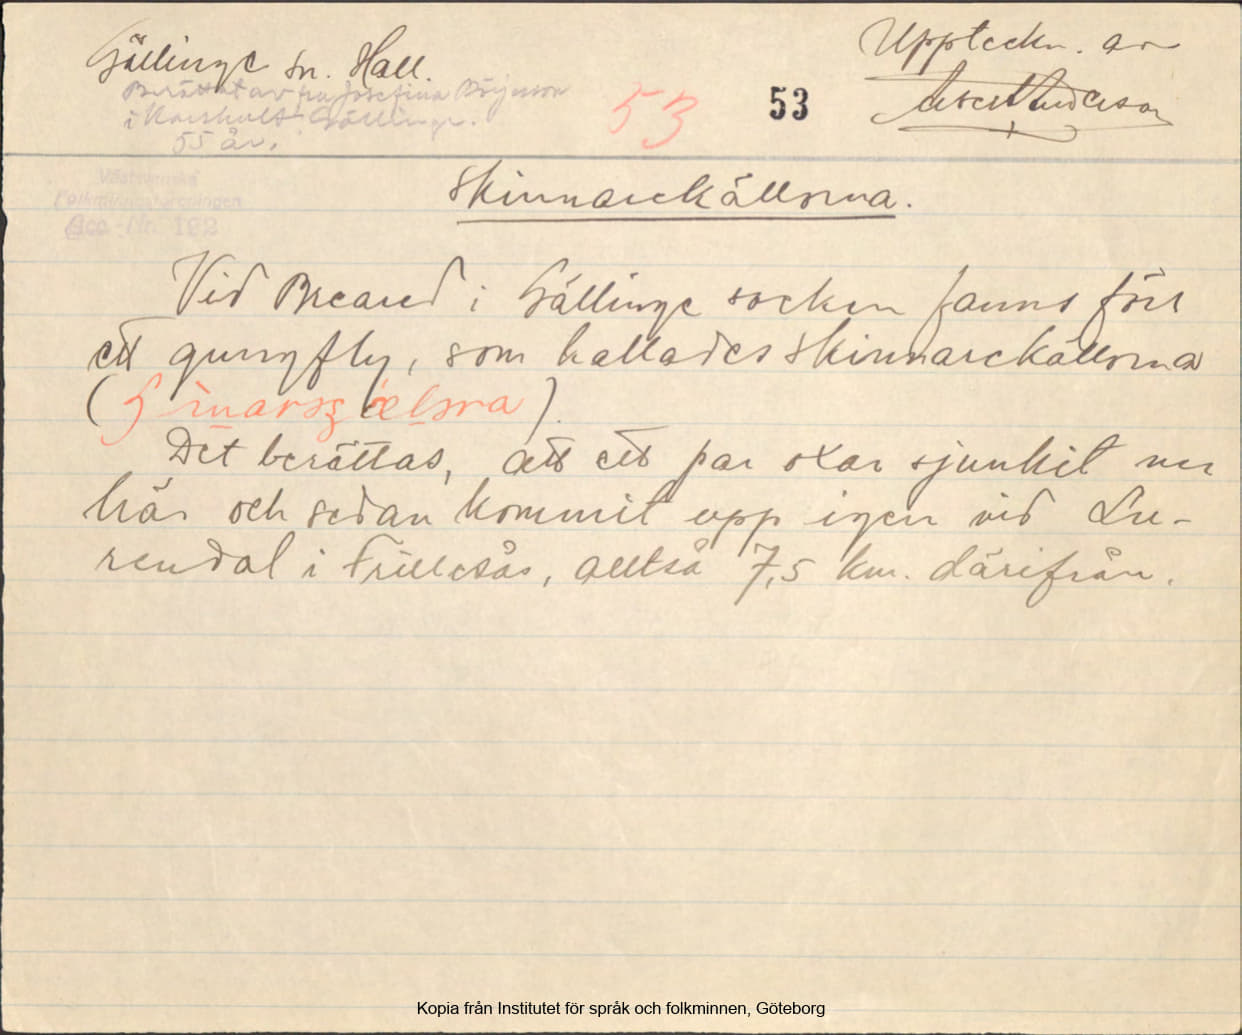 Gällinge sn. Hall.
Uppteckn. av
Berättat av fru Josefina Börjesson
i Karshult Gällinge.
55 år.
53
53
Andersson
Västsvenska
Folkminnesföreningen
Acc.-Nr. 192
Skinnarekällorna.
Vid Breared i Gällinge socken fanns förr
ett gungfly, som kallades Skinnarekällorna
Det berättas, att ett par oxar sjunkit ner
här och sedan kommit upp igen vid Lu-
rendal i Frillesås, alltså 7,5 km. därifrån.
Kopia från Institutet för språk och folkminnen, Göteborg